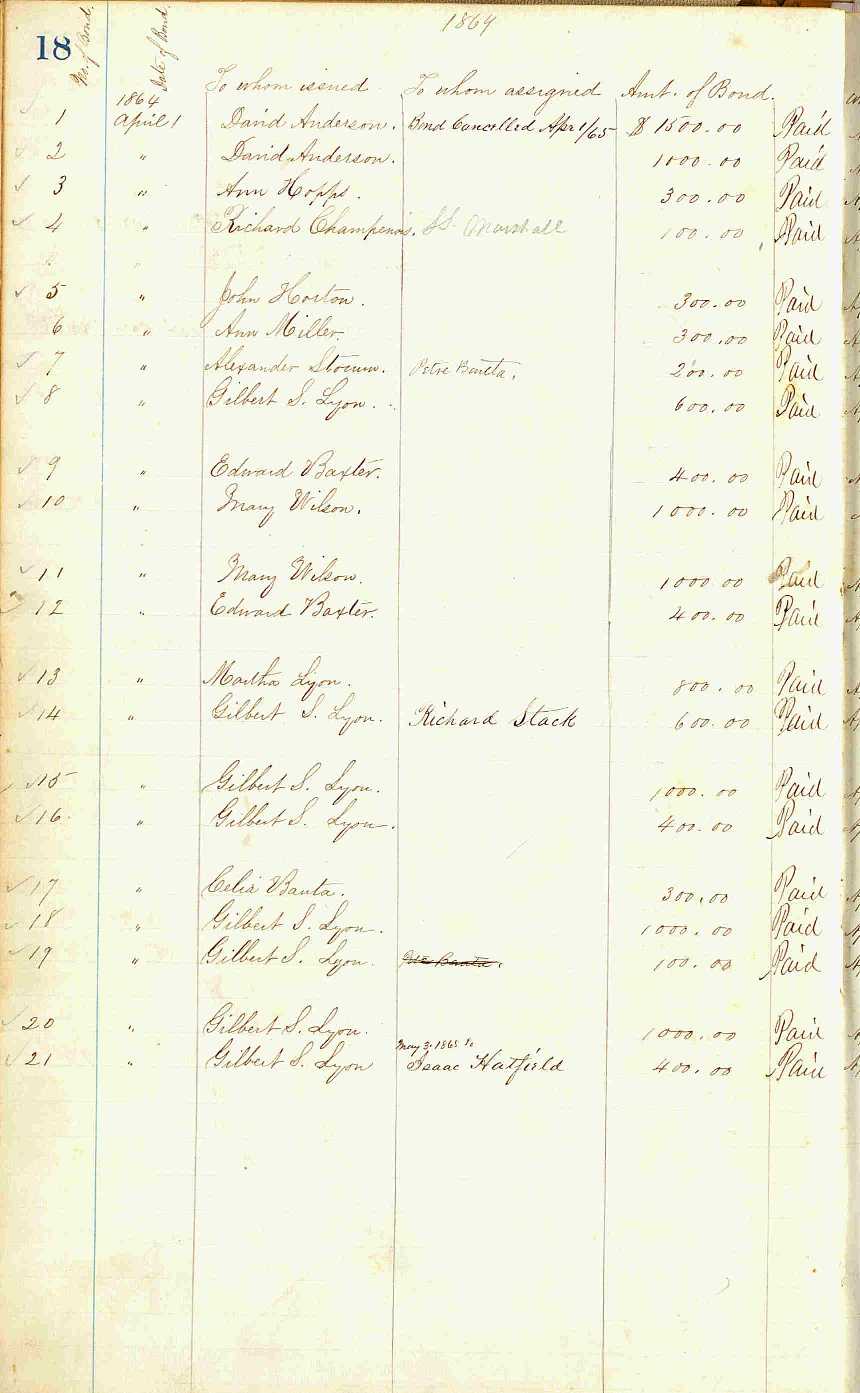 1864
18 No. of Bond. Date of Bond. To whom issued To whom assigned Amt. of Bond.
1864
1 April 1 David Anderson. Bond Cancelled Apr 1/65 $ 1500.00 Paid
2 " David Anderson. 1000.00 Paid
3 " Ann Hopps. 300.00 Paid
4 " Richard Champenois. Marshall 100.00 Paid
5 " John Horton. 300.00 Paid
6 " Ann Miller. 300.00 Paid
7 " Alexander Slocum. Petre Banta. 200.00 Paid
8 " Gilbert S. Lyon. 600.00 Paid
9 " Edward Baxter. 400.00 Paid
10 " Mary Wilson. 1000.00 Paid
11 " Mary Wilson. 1000 00 Paid
12 " Edward Baxter. 400.00 Paid
13 " Martha Lyon. 800.00 Paid
14 " Gilbert S. Lyon. Richard Stack 600.00 Paid
15 " Gilbert S. Lyon. 1000.00 Paid
16 " Gilbert S. Lyon. 400.00 Paid
17 " Celia Banta. 300.00 Paid
18 " Gilbert S. Lyon. 1000.00 Paid
19 " Gilbert S. Lyon. Banta. 100.00 Paid
20 " Gilbert S. Lyon. 1000.00 Paid
May 3. 1865 to
21 " Gilbert S. Lyon Isaac Hatfield 400.00 Paid